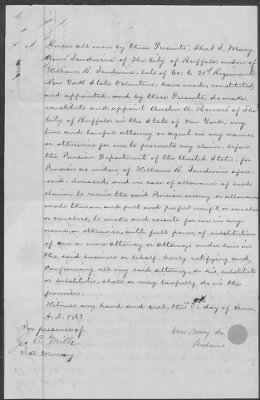 Know all men by these Presents, That I Mary
Ann of The City of Buffalo, widow of
William R. late of Co. C. 21st Regiment
New York State Volunteers, have made, constituted,
and appointed, and by these Presents, do make,
constitute and appoint Austin A. of The
City of Buffalo in the State of New York, my
true and lawful attorney or agent in my name
or otherwise for me to presents my claim, before
the Pension Department of the United States. for
Pension as widow of William R. afore
said, deceased, and in case of allowance of such
claims, to receive the said Pension money or allowance
made thereon, and full and perfect receipt or receipts
or vouchers, to make and execute for me in my
name, or otherwise, with full power of substitution
of one or more attorney or attorneys under him in
the said business or behalf. hereby ratifying and
Confirming all my said attorney, or his, substitute
or substitutes, shall or may lawfully, do in the
premises.
Witness my hand and seal, this day of June,
A. D. 1863
In presence of
Mary